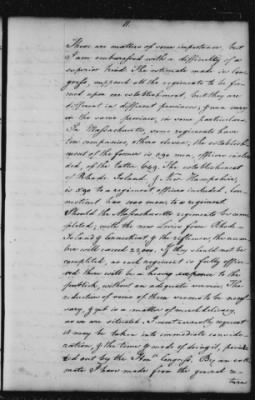 11.
These are matters of some importance, but
I am embarrassed with a difficulty of a
superior kind. The estimate made in Con-
gress, supposed all the regiments to be for-
med upon one establishment, but they are
different in different provinces; & even vary
in the same province, in some particulars.
In Massachusetts, some regiments have
ten companies, others eleven; the establish-
ment of the former is 590 men, officers inclu-
ded, of the latter 649. The establishment
of Rhode Island, & New Hampshire,
is 590 to a regiment officers included. Con-
necticut has 1000 men to a regiment.
Should the Massachusetts regiments be com-
pleted; with the new levies from Rhode
Island & Connecticut & the riflemen, the num-
ber will exceed 22,000. If they should not be
completed, as each regiment is fully offi-
cered there will be a heavy expence to the
publick, without an adequate service. The
reduction of some of them seems to be neces-
sary, & yet is a matter of much delicacy,
as we are situated. I most earnestly request
it may be taken into immediate conside-
ration, & the time & mode of doing it, poin-
ted out by the Hon. Congress. By an esti-
mate I have made from the general re-
turn